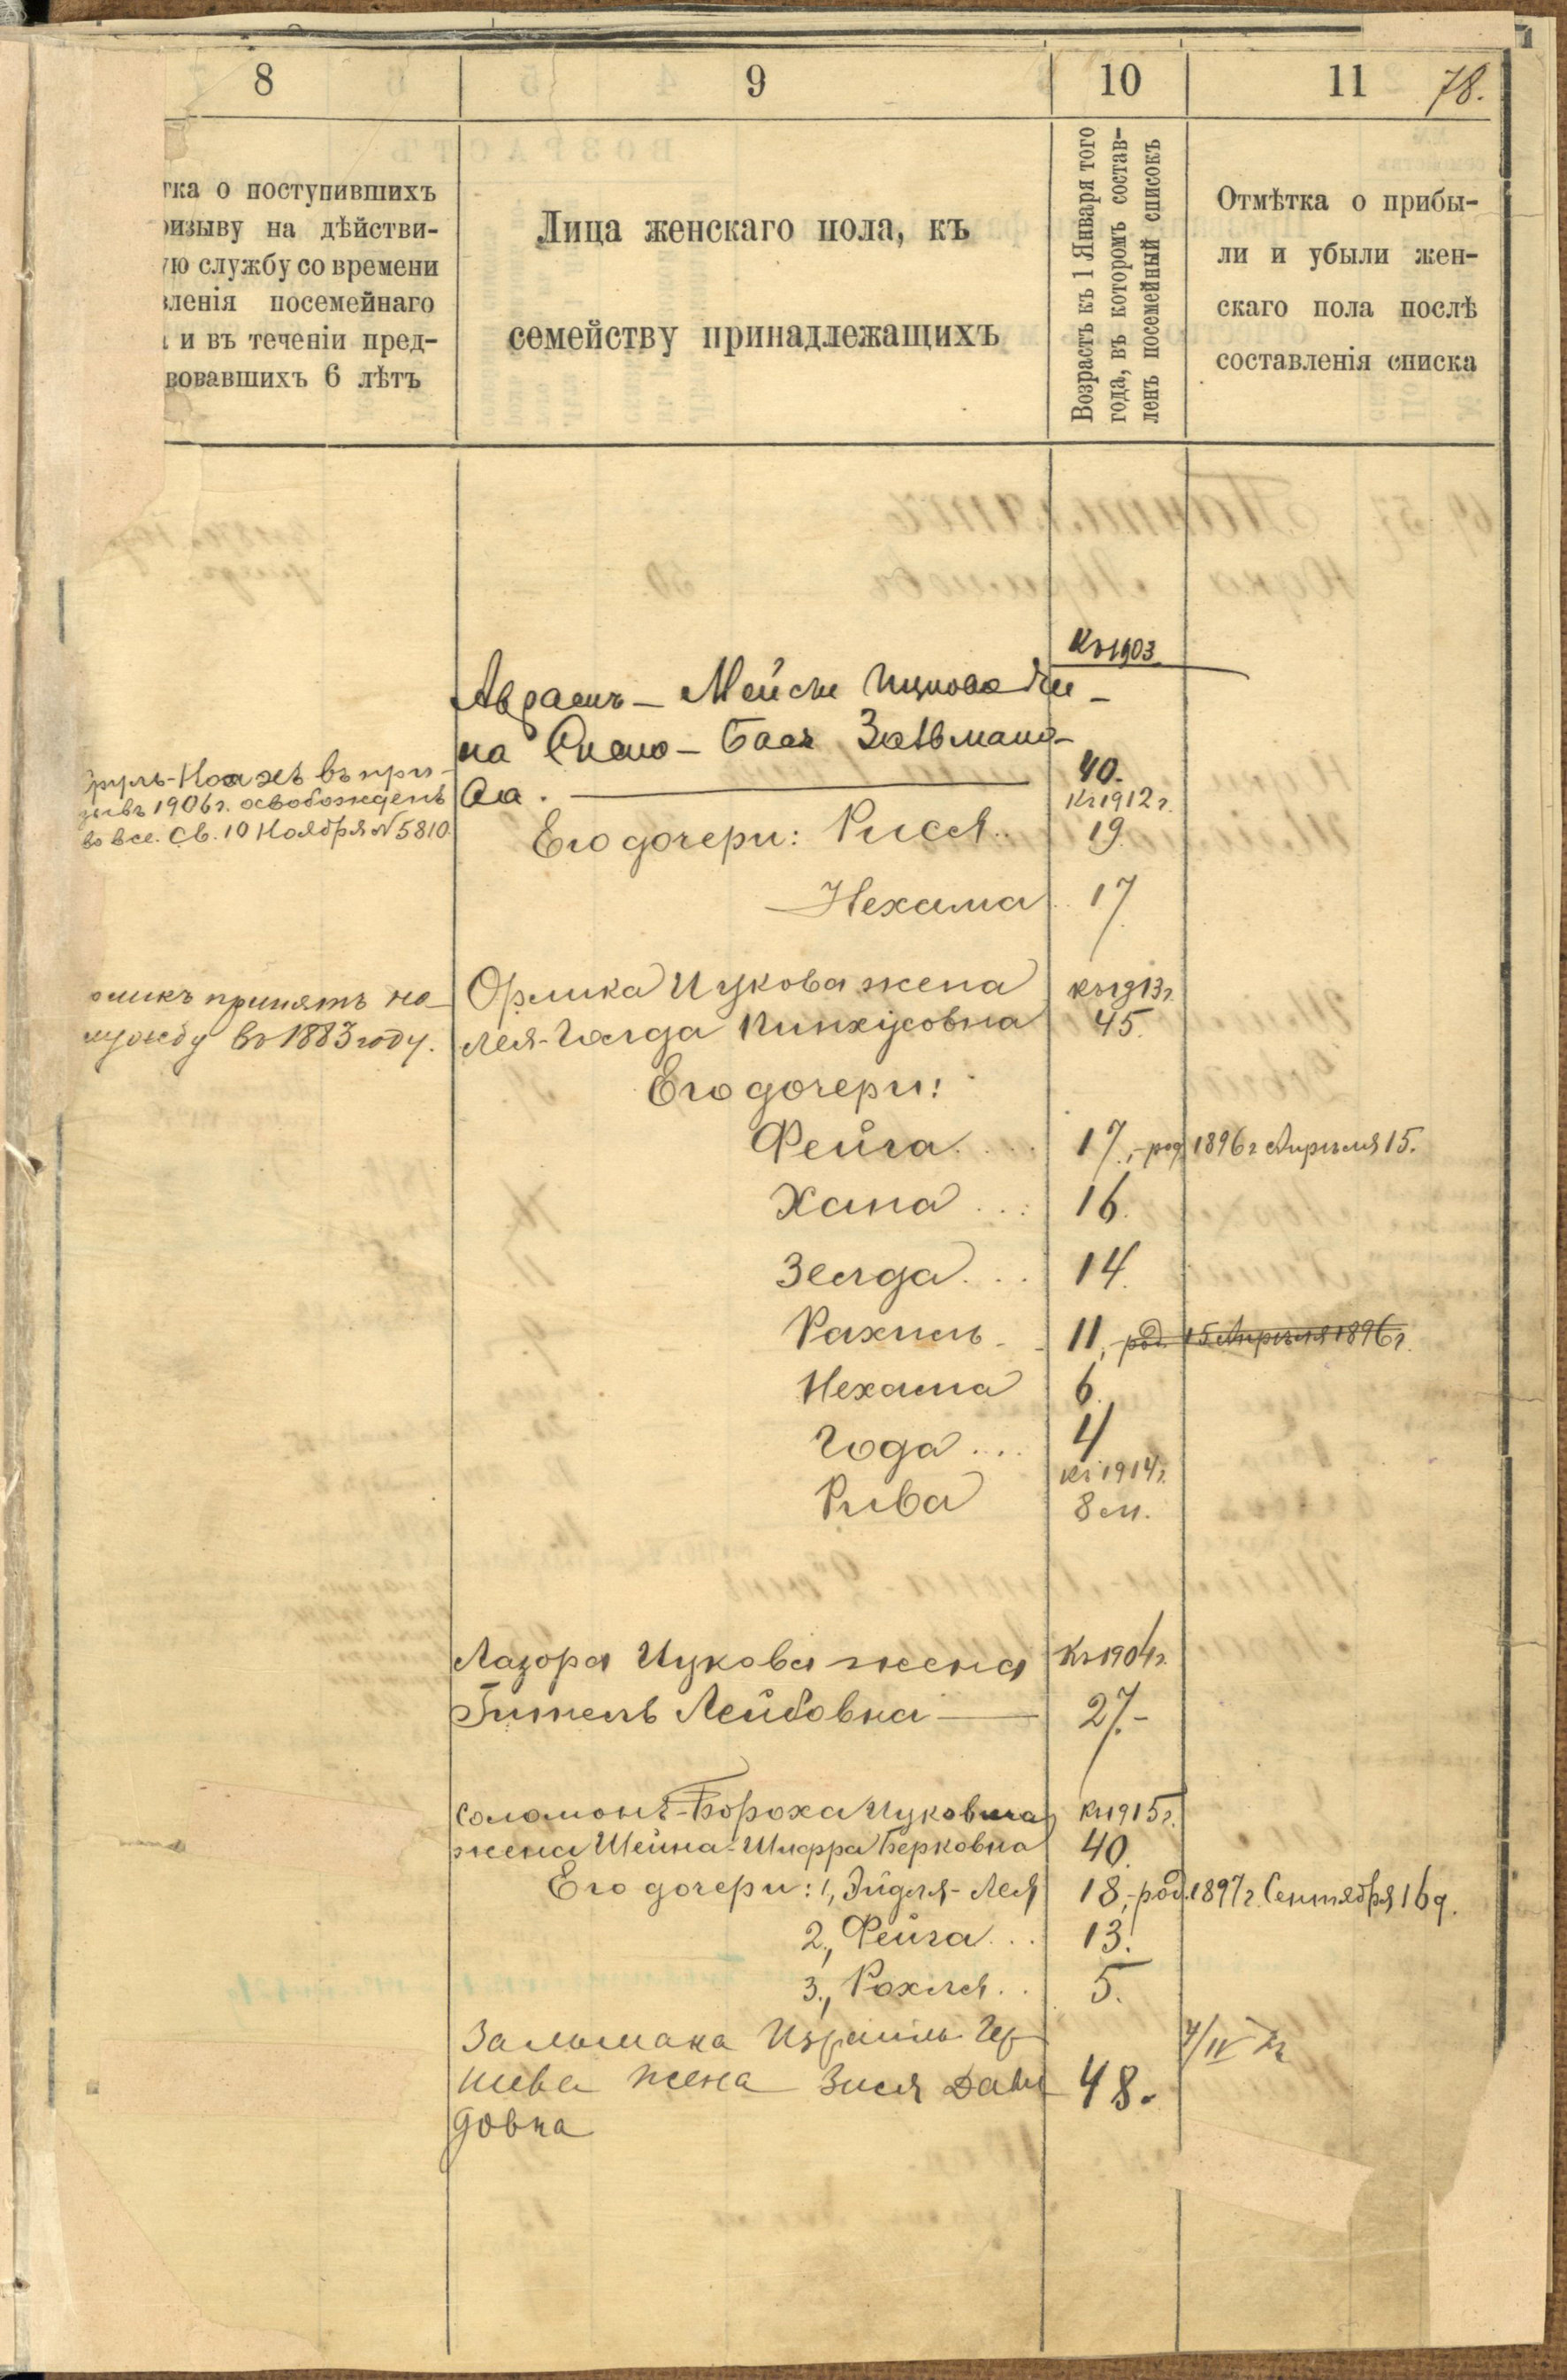 8 9 10 11 78.
тка о поступившихъ
ризыву на дѣйстви-
ую службу со времени
вленія посемейнаго
и въ теченіи пред-
вовавшихъ 6 лѣтъ
Лица женскаго пола, къ
семейству принадлежащихъ
Возрастъ къ 1 Января того
года, въ которомъ состав-
ленъ посемейный списокъ
Отмѣтка о прибы-
ли и убыли жен-
скаго пола послѣ
составленія списка
Къ 1903
Авраамъ-Мейсы Ицкова же-
на
40.
Къ 1912 г.
Ноахъ въ при-
зывъ 1906 г. освобожденъ
во все. Св. 10 Ноября N 5810.
Его дочери: Рися.. 19.
Нехама.. 17
омикъ принятъ на
службу въ 1883 году.
Орлика Ицкова жена къ 1913 г.
Лея-Голда Пинхусовна 45.
Его дочери:
Фейга.... 17, - род. 1896 г. Апрѣля 15.
Хана...: 16.
Зелда... 14.
Рахиль.. 11, - род. 15 Апрѣля 1896 г.
Нехама 6.
Года... 4
Къ 1914 г.
Рива 8 м.
Лазора Ицкова жена Къ 1904 г.
Гитель Лейбовна — 27. -
Соломонъ-Бороха Ицковича Къ 1915 г.
жена Шейна-Шифра Берковна 40.
Его дочери: 1, Эйдля-Лея 18, - род. 1897 г. Сентября 16 д.
2., Фейга... 13.
3., Рохля.. 5.
Зальмана Израиль Ир-
шева жена Зися Дави
довна
48.
7/IV